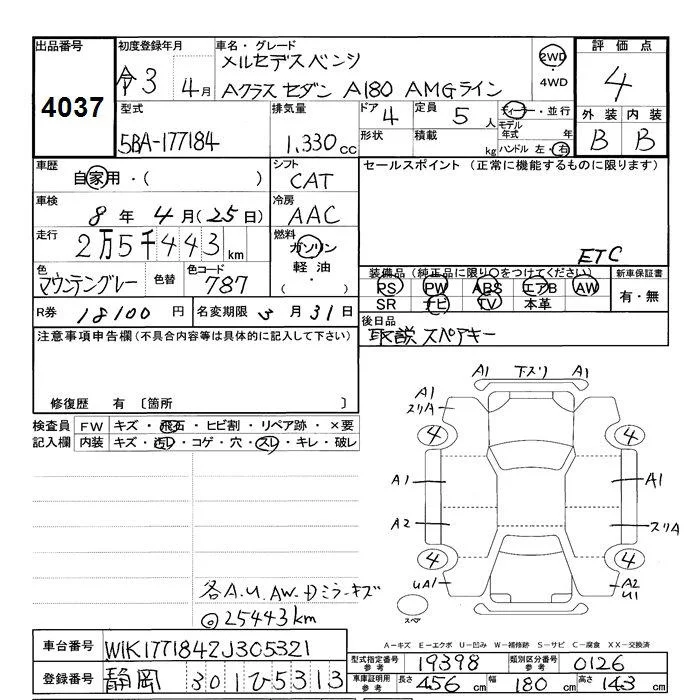 出品番号
4037
初度登録年月
令3 4月
車名・グレード
メルセデスベンツ
Aクラス セダン A180 AMGライン
2WD
・
4WD
評価点
4
型式
5BA-177184
排気量
1,330cc
ドア 4
定員 5人
ディーラー・並行
モデル年式 年
形状
積載 kg
ハンドル 左・右
外装 内装
B B
車歴
自家用・( )
シフト
CAT
セールスポイント (正常に機能するものに限ります)
ETC
車検
8年 4月(25日)
冷房
AAC
走行
2万5千443km
燃料
ガソリン
軽油
( ・ )
色
マウンテングレー
色替
色コード
787
装備品 (純正品に限り○をつけてください)
PS PW ABS エアB AW
SR ナビ TV 本革
新車保証書
有・無
R券 18100円
名変期限 5月31日
後日品
取説 スペアキー
注意事項申告欄(不具合内容等は具体的に記入して下さい)
修復歴 有 〔箇所 〕
検査員記入欄
FW キズ・飛石・ヒビ割・リペア跡・×要
内装 キズ・汚レ・コゲ・穴・スレ・キレ・破レ
A1 下スリ A1
A1
スリA
4 4
A1 A1
A2 スリA
4 4
UA1 A2
U1
スペア
各A.U.AW.Dミラーキズ
◎25443km
A-キズ E-エクボ U-凹み W-補修跡 S-サビ C-腐食 XX-交換済
車台番号 W1K1771842J305321
登録番号 静岡 301ひ5313
型式指定番号 参考 19398
類別区分番号 参考 0126
車庫証明用 参考 長さ 456cm 幅 180cm 高さ 143cm